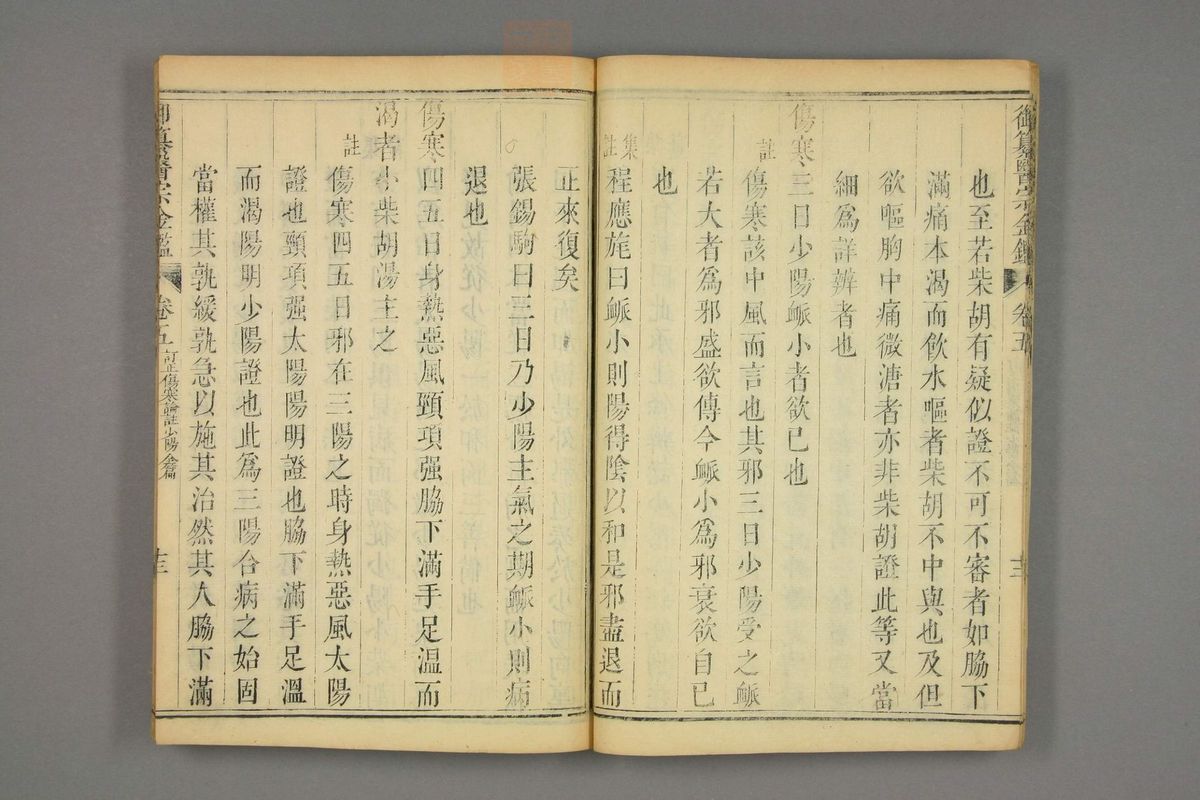 御纂醫宗金鑑 卷五 十三
也至若柴胡有疑似證不可不審者如脇下
滿痛本渴而飲水嘔者柴胡不中與也及但
欲嘔胸中痛微溏者亦非柴胡證此等又當
細爲詳辨者也
傷寒三日少陽脈小者欲已也
註 傷寒該中風而言也其邪三日少陽受之脈
若大者爲邪盛欲傳今脈小爲邪衰欲自已
也
集註 程應旄曰脈小則陽得陰以和是邪盡退而
正來復矣
張錫駒曰三日乃少陽主氣之期脈小則病
退也
傷寒四五日身熱惡風頸項强脇下滿手足温而
渴者小柴胡湯主之
註 傷寒四五日邪在三陽之時身熱惡風太陽
證也頸項强太陽陽明證也脇下滿手足溫
而渴陽明少陽證也此爲三陽合病之始固
當權其孰緩孰急以施其治然其人脇下滿
御纂醫宗金鑑 卷五 訂正傷寒論註少陽全篇 十三